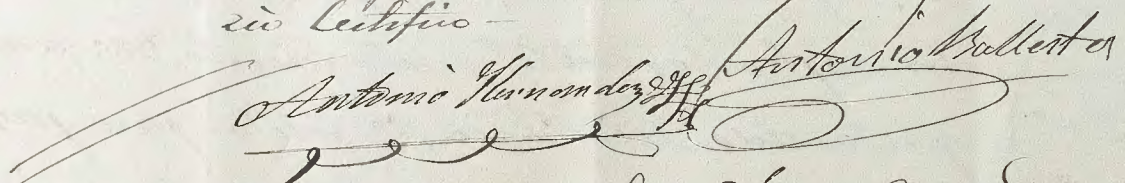 rio Certifico
Antonio Hernandez Antonio Ballesta